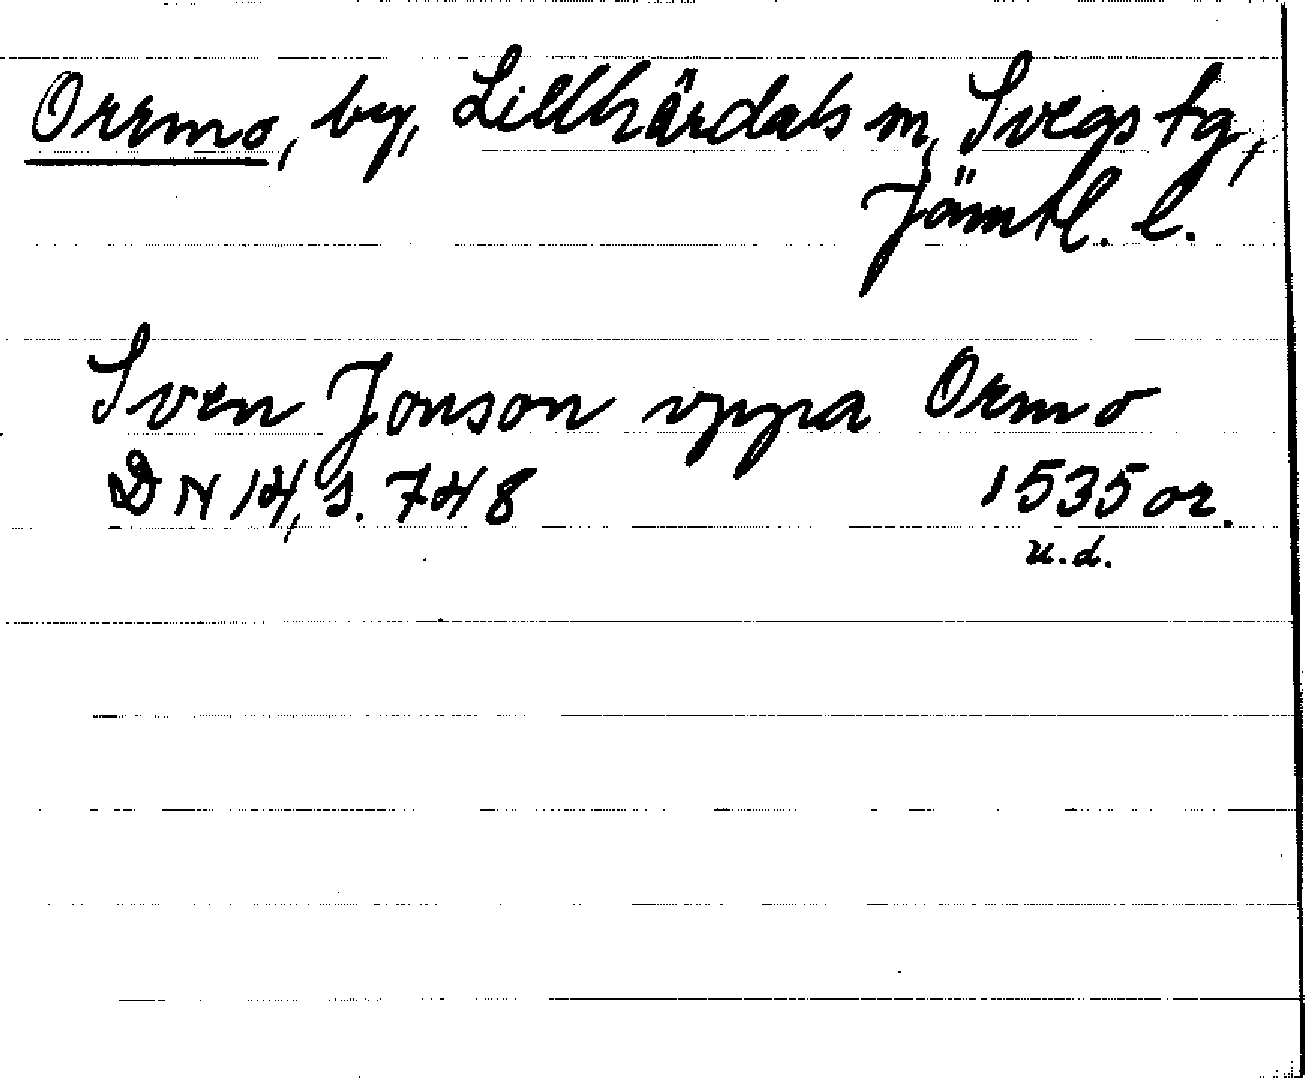 Orrmo, by, Lillhärdals sn, Svegs tg,
Jämtl. l.
Sven Jonson vppa Ormo
DN 14, s. 748 1535 or.
u.d.